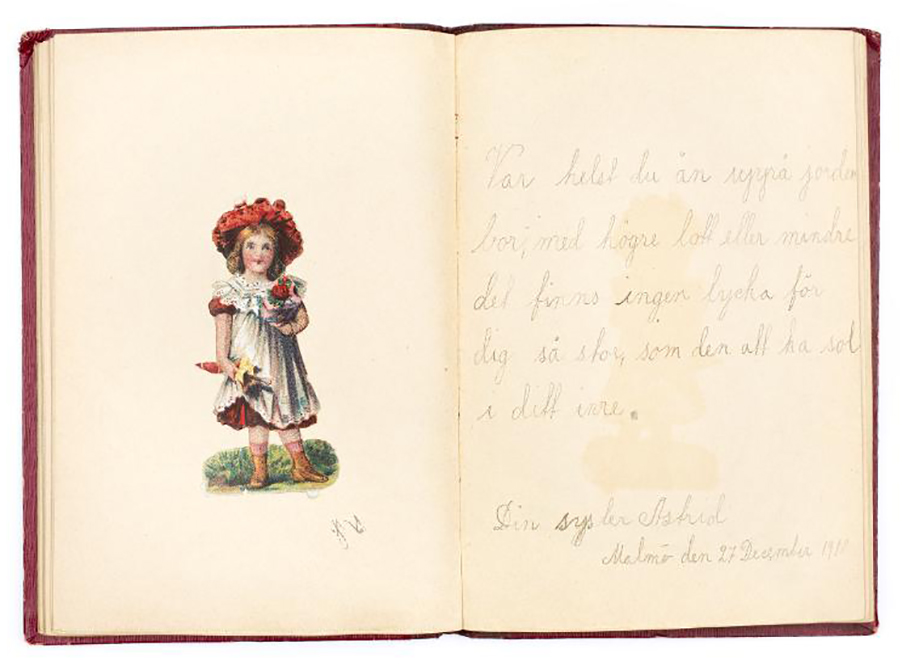 Var helst du än uppå jorden
bor, med högre lott eller mindre
det finns ingen lycka för
dig så stor, som den att ha sol
i ditt inre.
Din syster Astrid
Malmö den 27 December